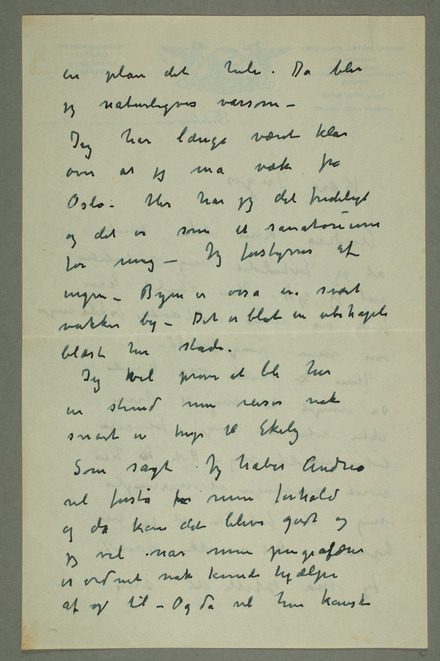 en plan det hele. Da blir
jeg naturligvis varsom –
Jeg har længe været klar
over at jeg må væk fra
Oslo – Her har jeg det fredeligt
og det er som et sanatorium
for meg – Jeg forstyrres af
ingen – Byen er også en svært
vakker by – Det er blot en ubehagelig
blæst her stadi.
Jeg vil prøve at bli her
en stund men reiser nok
snart en tur til Ekely
Som sagt Jeg håber Andrea
vil forstå mine forhold
og da kan det blive godt og
jeg vil når mine pengeaffærer
er ordnet nok kunde hjælpe
af og til – Og da vil hun kanske